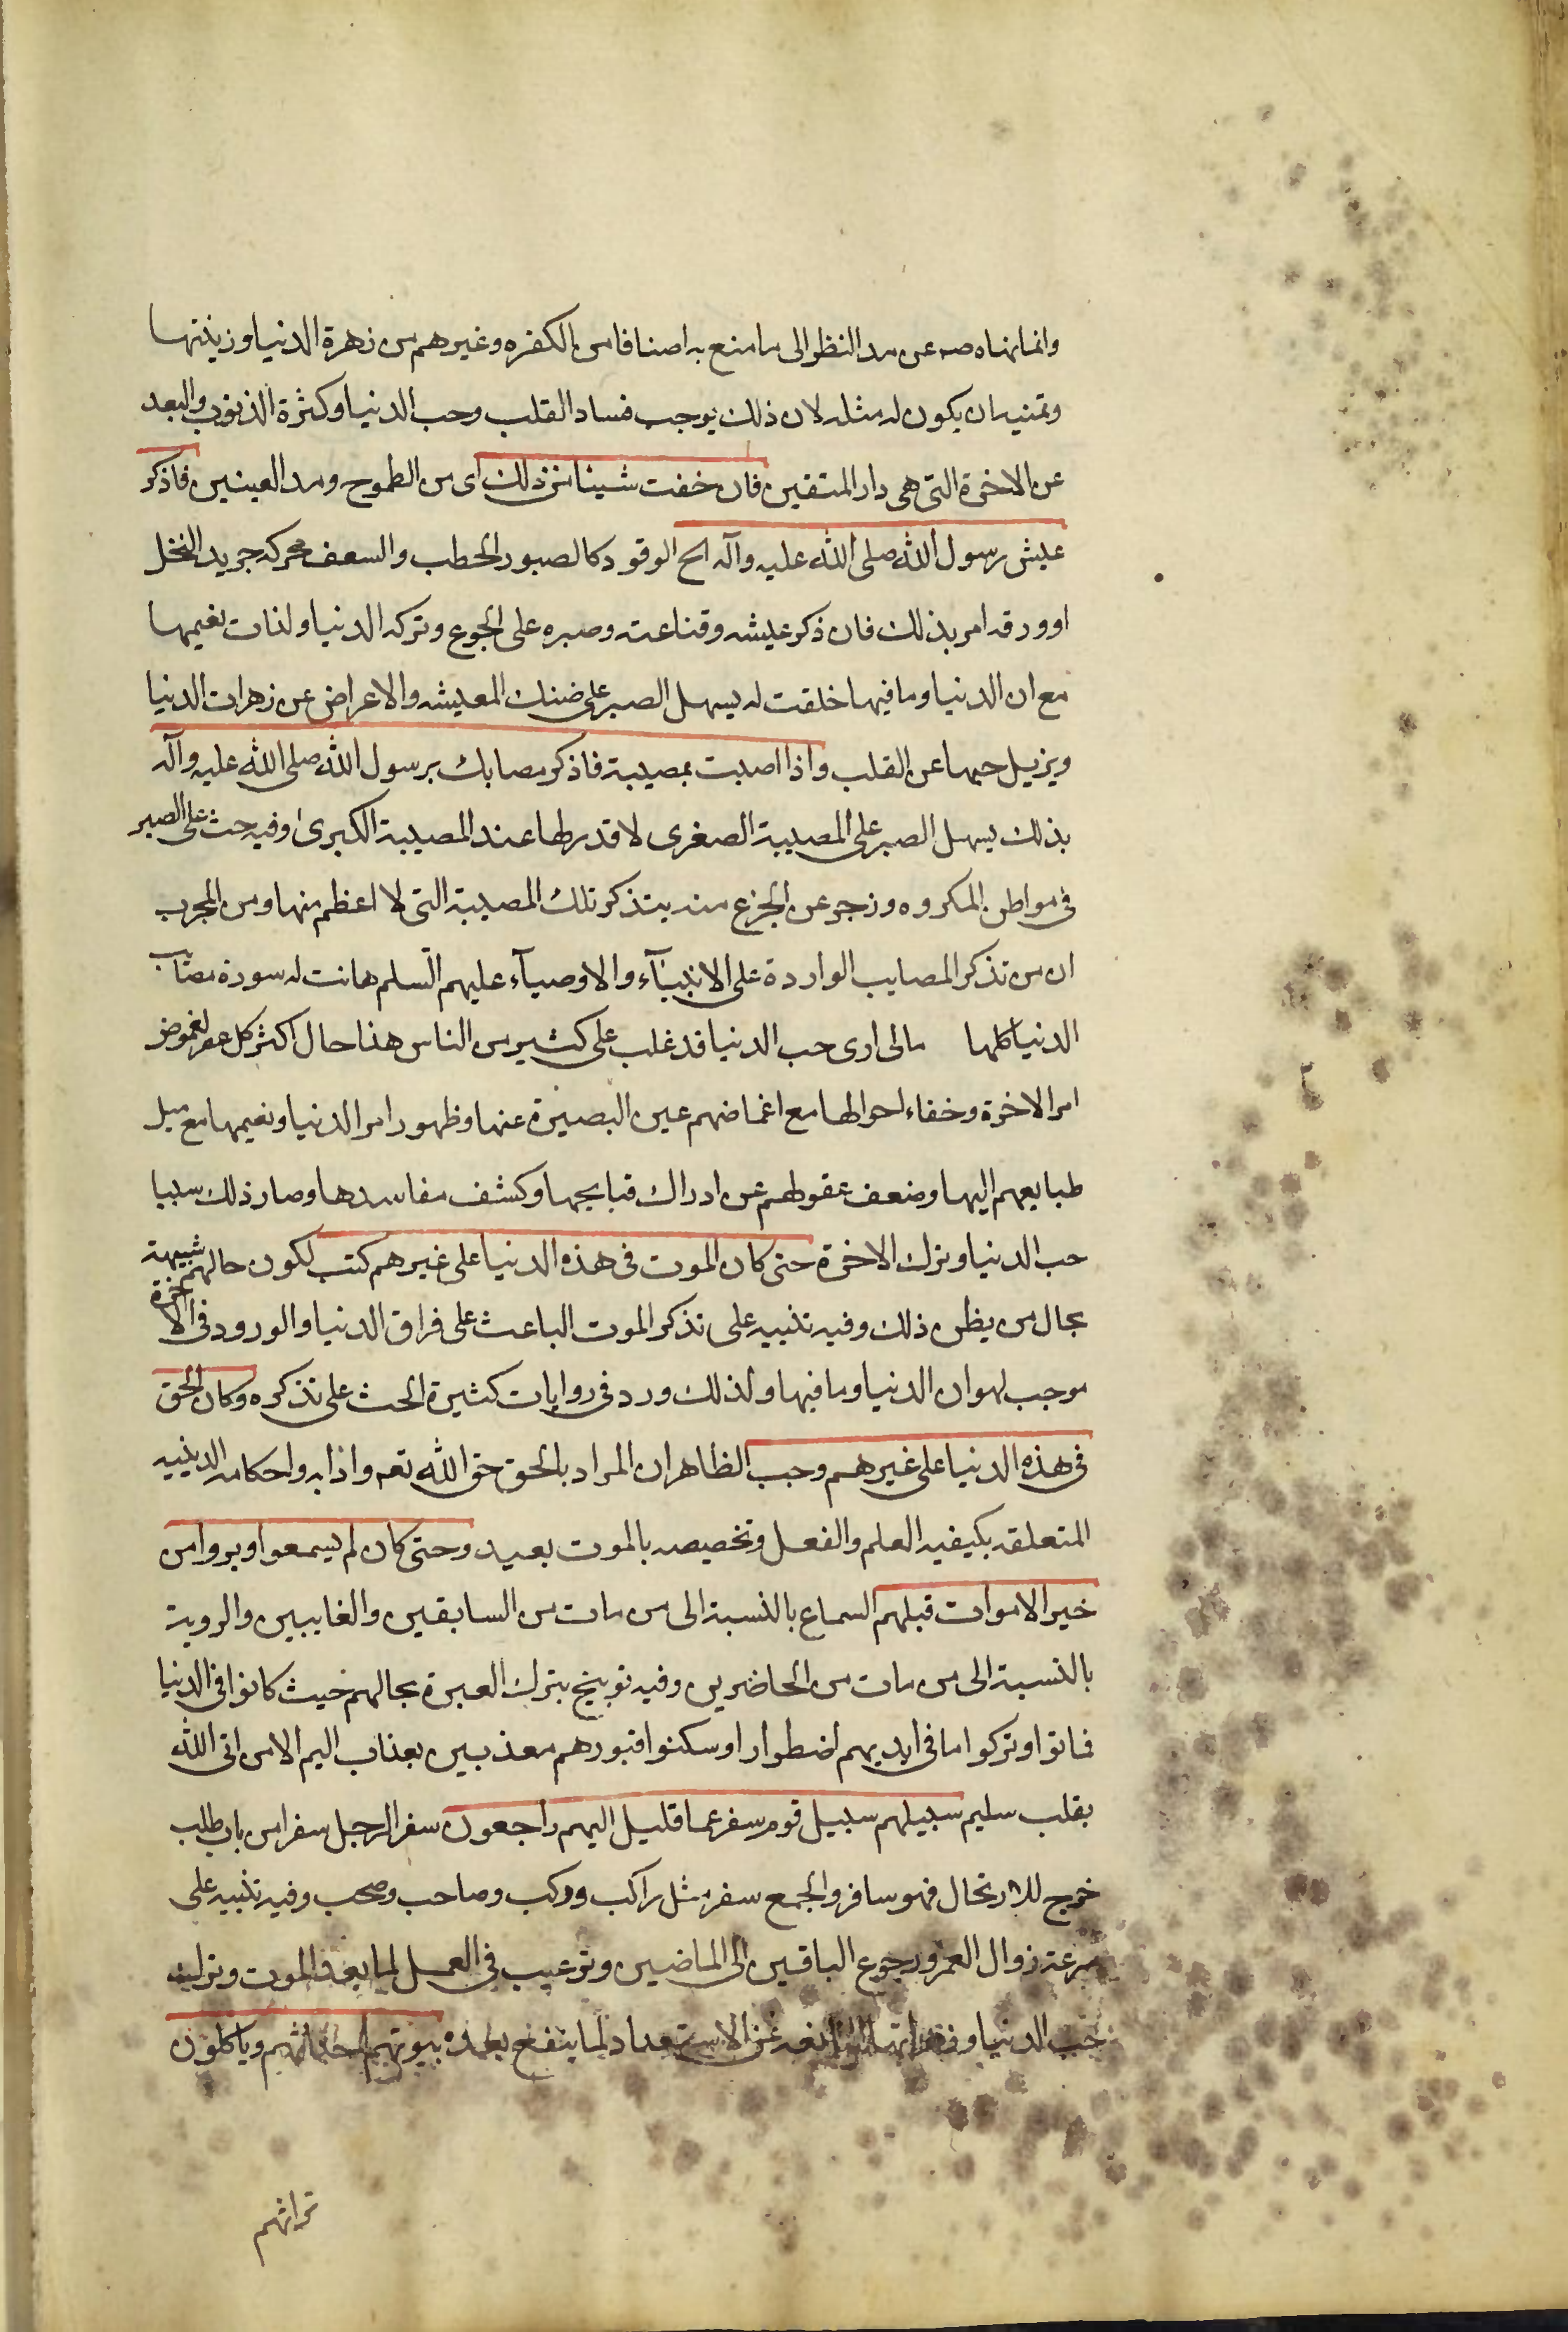 وانما نهاه صه عن مد النظر الى ما منع به اصنافا من الكفره وغيرهم من زهرة الدنيا وزينتها
وتمنيه ان يكون له مثله لان ذلك يوجب فساد القلب وحب الدنيا وكثرة الذنوب والبعد
عن الاخرة التى هى دار المتقين فان خفت شيئا من ذلك اى من الطموح ومد العينين فاذكر
عيش رسول الله صلى الله عليه وآله الخ الوقود كالصبور الحطب والسعف محركه جريد النخل
او ورقه امر بذلك فان ذكر عيشه وقناعته وصبره على الجوع وتركه الدنيا ولذات نعيمها
مع ان الدنيا وما فيها خلقت له يسهل الصبر على ضنك المعيشه والاعراض عن زهرات الدنيا
ويزيل حبها عن القلب واذا اصبت بمصيبة فاذكر مصابك برسول الله صلى الله عليه وآله
بذلك يسهل الصبر على المصيبة الصغرى لا قدر لها عند المصيبة الكبرى وفيه حث على الصبر
فى مواطن المكروه وزجر عن الجزع منه بتذكر تلك المصيبة التى لا اعظم منها ومن المجرب
ان من تذكر المصايب الواردة على الانبيآء والاوصيآء عليهم السلم هانت له سورة مصائب
الدنيا كلها مالى ارى حب الدنيا قد غلب على كثير من الناس هذا حال اكثر كل عصر لغموض
امر الاخرة وخفاء احوالها مع اغماضهم عين البصيرة عنها وظهور امر الدنيا ونعيمها مع ميل
طبايعهم اليها وضعف عقولهم عن ادراك قبايحها وكشف مفاسدها وصار ذلك سببا
حب الدنيا وترك الاخرة حتى كان الموت فى هذه الدنيا على غيرهم كتب لكون حالهم شبيهة
بحال من يظن ذلك وفيه تنبيه على تذكر الموت الباعث على فراق الدنيا والورود فى الاخرة
موجب لهوان الدنيا وما فيها ولذلك ورد فى روايات كثيرة الحث على تذكره وكان الحق
فى هذه الدنيا على غيرهم وجب الظاهر ان المراد بالحق حق الله تعه واذابه واحكامه الدينيه
المتعلقه بكيفيه العلم والفعل وتخصيصه بالموت بعيد وحتى كان لم يسمعوا ويروا من
خير الاموات قبلهم السماع بالنسبة الى من مات من السابقين والغايبين والروية
بالنسبة الى من مات من الحاضرين وفيه توبيخ بترك العبرة بحالهم حيث كانوا فى الدنيا
فماتوا وتركوا ما فى ايديهم اضطرارا وسكنوا قبورهم معذبين بعذاب اليم الا من اتى الله
بقلب سليم سبيلهم سبيل قوم سفر عما قليل اليهم راجعون سفر الرجل سفرا من باب طلب
خرج للارتحال فهو سافر والجمع سفر مثل راكب وركب وصاحب وصحب وفيه تنبيه على
سرعة زوال العمر ورجوع الباقين الى الماضين وترغيب فى العمل لما بعد الموت وترك
حب الدنيا عن الاستعداد لما ينفع بعده بيوتهم اجداثهم وياكلون
تراثهم